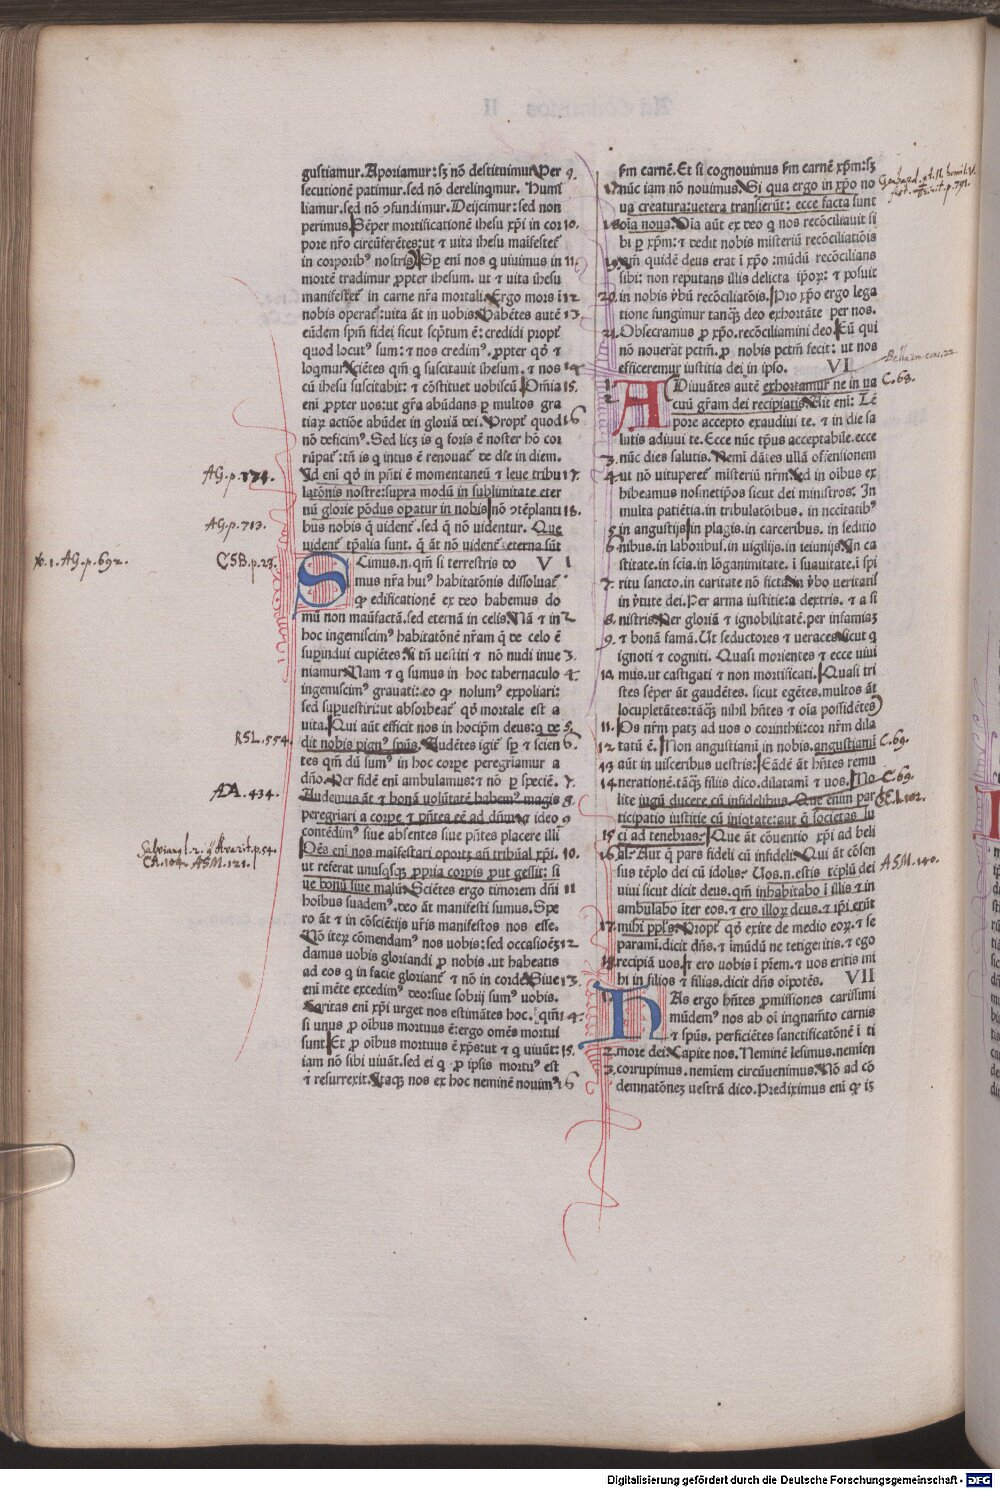 gustiamur. Aporiamur: sꝫ nō destituimur. Per 9.
secutionē patimur. sed nō derelinqmur. Humi
liamur. sed nō ꝯfundimur. Deijcimur: sed non
perimus. Sēper mortificationē ihesu xp̄i in cor 10.
pore nr̄o circūferētes: ut ⁊ uita ihesu māifestet᷑
in corporibꝰ nostris. Sꝑ enī nos q uiuimus in 11.
mortē tradimur ꝓpter ihesum. ut ⁊ uita ihesu
manifestet᷑ in carne nr̄a mortali. Ergo mors ī 12
nobis operat᷑: uita āt in uobis. Habētes autē 13.
eūdem spm̄ fidei sicut scp̄tum ē: credidi propt᷑
quod locutꝰ sum: ⁊ nos credimꝰ. ꝓpter qō ⁊
loqmur. sciētes qm̄ q suscitauit ihesum. ⁊ nos 14
cū ihesu suscitabit: ⁊ cōstituet uobiscū. Om̄ia 15.
enī ꝓpter uos: ut gr̄a abūdans ꝑ multos gra
tiaꝝ actiōe abūdet in gloriā dei. Propt᷑ quod 16
nō deficimꝰ. Sed licꝫ is q foris ē noster hō cor
rūpat᷑: tn̄ is q intus ē renouat᷑ de die in diem.
Id enī qō in pn̄ti ē momentaneū ⁊ leue tribu 17.
latōnis nostre: supra modū in sublimitate eter
nū glorie pōdus oꝑatur in nobis. nō ꝯtēplanti 18.
bus nobis q̄ uident᷑. sed q̄ nō uidentur. Que
uident᷑ tp̄alia sunt. q̄ āt nō uident᷑ eterna sūt
SCimus.n. qm̄ si terrestris do V 1
mus nr̄a huiꝰ habitatōnis dissoluat᷑
ꝙ edificationē ex deo habemus do
mū non manūfactā. sed eternā in celis. Nā ⁊ in 2
hoc ingemiscimꝰ habitatōnē nr̄am q̄ de celo ē
suꝑindui cupiētes. si tn̄ uestiti ⁊ nō nudi inue 3.
niamur. Nam ⁊ q sumus in hoc tabernaculo 4
ingemiscimꝰ grauati: eo ꝙ nolumꝰ expoliari:
sed supuestiri: ut absorbeat᷑ qō mortale est a
uita. Qui aūt efficit nos in hocip̄m deus: q de 5.
dit nobis pignꝰ sp̄us. Audētes igit᷑ sꝑ ⁊ scien 6.
tes qm̄ dū sumꝰ in hoc corpe peregriamur a
dn̄o. Per fidē enī ambulamus: ⁊ nō ꝑ speciē. 7.
Audemus āt ⁊ bonā uolūtatē habemꝰ magis 8.
peregriari a corpe ⁊ pn̄tes eē ad dn̄um. ⁊ ideo 9
contēdimꝰ siue absentes siue pn̄tes placere illi
Oēs enī nos maifestari oportꝫ añ tribūal xp̄i. 10.
ut referat unusqsqꝫ ꝓpria corpis ꝓut gessit: si
ue bonū siue malū. Sciētes ergo timorem dn̄i 11
hoibus suademꝰ. deo āt manifesti sumus. Spe
ro āt ⁊ in cōsciētijs ur̄is manifestos nos esse.
Nō iteꝝ cōmendamꝰ nos uobis: sed occasioēꝫ 12
damus uobis gloriandi ꝓ nobis. ut habeatis
ad eos q in facie gloriant᷑ ⁊ nō in corde. Siue 13.
enī mēte excedimꝰ deo: siue sobrij sumꝰ uobis.
Caritas enī xp̄i urget nos estimātes hoc. qm̄ 14.
si unus ꝓ oībus mortuus ē: ergo omēs mortui
sunt. Et ꝓ oībus mortuus ē xp̄s: ut ⁊ q uiuūt: 15.
iam nō sibi uiuāt. sed ei q ꝓ ipsis mortuꝰ est
⁊ resurrexit. Itaqꝫ nos ex hoc neminē nouimꝰ 16
AG.p.174.
AG.p.713.
AG.p.692.
CSB.p.28.
RSL.554.
AA.434.
CA.104. ASM.121.
ẜm carnē. Et si cognouimus ẜm carnē xp̄m: sꝫ
17. nūc iam nō nouimus. Si qua ergo in xp̄o no
ua creatura: uetera transierūt: ecce facta sunt
18 oīa noua. Oīa aūt ex deo q nos recōciliauit si
bi ꝑ xp̄m: ⁊ dedit nobis misteriū recōciliatiōis
19. qm̄ quidē deus erat ī xp̄o: mūdū recōcilians
sibi: non reputans illis delicta ip̄oꝝ: ⁊ posuit
20. in nobis v̄bū recōciliatōis. Pro xp̄o ergo lega
tione fungimur tanqꝫ deo exhortāte per nos.
21. Obsecramus ꝓ xp̄o. recōciliamini deo. Eū qui
nō nouerat pctm̄. ꝓ nobis pctm̄ fecit: ut nos
efficeremur iustitia dei in ipso. VI
1. ADiuuātes autē exhortamur ne in ua
2 cuū gr̄am dei recipiatis. Ait enī: Tē
pore accepto exaudiui te. ⁊ in die sa
lutis adiuui te. Ecce nūc tp̄us acceptabile. ecce
3. nūc dies salutis. Nemī dātes ullā offensionem
4. ut nō uituperet᷑ misteriū nr̄m. sed in oībus ex
hibeamus nosmetip̄os sicut dei ministros. In
multa patiētia. in tribulatōibus. in nccitatibꝰ
5 in angustijs. in plagis. in carceribus. in seditio
6 nibus. in laboribus. in uigilijs. in ieiunijs. In ca
stitate. in scīa. in lōganimitate. ī suauitate. ī spi
7. ritu sancto. in caritate nō ficta. in v̄bo ueritatis
in v̄tute dei. Per arma iustitie: a dextris. ⁊ a si
8. nistris. Per gloriā ⁊ ignobilitatē. per infamiaꝫ
9. ⁊ bonā famā. Ut seductores ⁊ ueraces. sicut q
ignoti ⁊ cogniti. Quasi morientes ⁊ ecce uiui
10. mus. ut castigati ⁊ non mortificati. Quasi tri
stes sēper āt gaudētes. sicut egētes. multos āt
locupletātes: tāqꝫ nihil hn̄tes ⁊ oīa possidētes
11. Os nr̄m patꝫ ad uos o corinthij: cor nr̄m dila
12 tatū ē. Non angustiamī in nobis. angustiamī
13 aūt in uisceribus uestris: Eādē āt hn̄tes remu
14 nerationē. tāqꝫ filiis dico. dilatamī ⁊ uos. No
lite iugū ducere cū infidelibus. Que enim par
ticipatio iustitie cū iniqtate: aut q̄ societas lu
15 ci ad tenebras: Que āt cōuentio xp̄i ad beli
16 al: Aut q̄ pars fideli cū infideli: Qui āt cōsen
sus tēplo dei cū idolus: Uos.n. estis tēplū dei
uiui sicut dicit deus. qm̄ inhabitabo ī illis ⁊ in
ambulabo īter eos. ⁊ ero illoꝝ deus. ⁊ ip̄i erūt
17. mihi ppl̄s. Propt᷑ qō exite de medio eoꝝ. ⁊ se
paramī. dicit dn̄s. ⁊ īmūdū ne tetigeritis. ⁊ ego
18. recipiā uos. ⁊ ero uobis ī pr̄em. ⁊ uos eritis mi
hi in filios ⁊ filias. dicit dn̄s oīpotēs. VII
1. HAs ergo hn̄tes ꝓmissiones carissimi
mūdemꝰ nos ab oī inqnam̄to carnis
⁊ sp̄us. perficiētes sanctificatōnē ī ti
2. more dei. Capite nos. Neminē lesimus. nemīem
3. corrupimus. nemīem circūuenimus. Nō ad cō
demnatōneꝫ uestrā dico. Prediximus enī ꝙ iꝫ
C.68.
C.69.
C.69.
ASM.140.
Digitalisierung gefördert durch die Deutsche Forschungsgemeinschaft - DFG